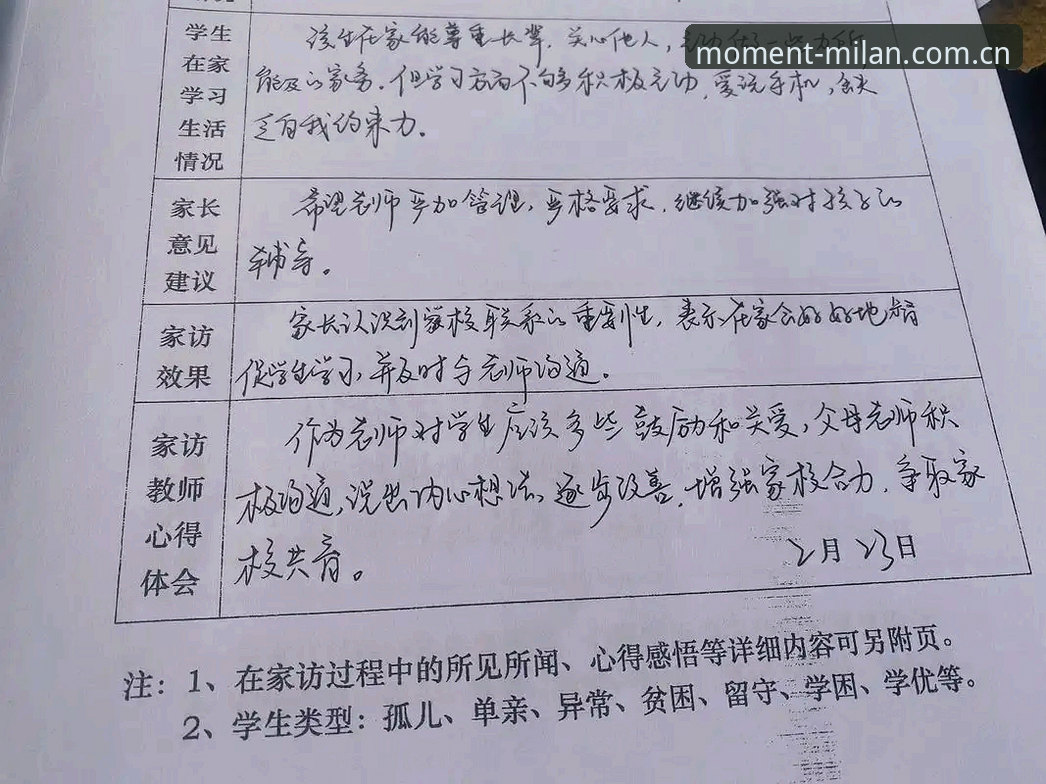 moment-milan.com.cn
学生
在家
学习
生活
情况
该生在家能尊重长辈，关心他人，
能及的家务。但学习方面不够积极主动，爱玩手机，缺
乏自我约束力。
家长
意见
建议
希望老师严加管理，严格要求，继续加强对孩子的
辅导。
家访
效果
家长认识到家校联系的重要性，表示在家会好好地督
促学生学习，并及时与老师沟通。
家访
教师
心得
体会
作为老师对学生应该多些鼓励和关爱，父母老师积
极沟通，说出内心想法，逐步改善，增强家校合力，争取家
校共育。
2月23日
注：1、在家访过程中的所见所闻、心得感悟等详细内容可另附页。
2、学生类型：孤儿、单亲、异常、贫困、留守、学困、学优等。